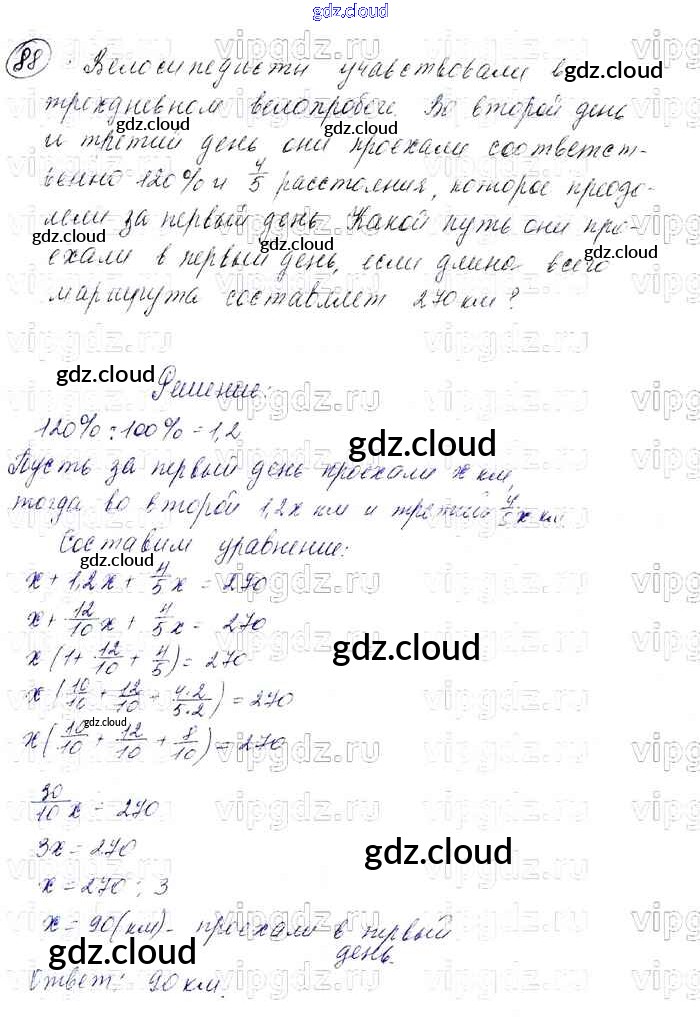 gdz.cloud
88. Велосипедисти учавствовали в
трехдневном велопробеге. Во второй день
и третий день они проехали соответст-
венно 120% и 4/5 расстояния, которое преодо-
лели за первый день. Какой путь они про-
ехали в первый день, если длина всего
маршрута составляет 270 км?
Решение:
120% : 100% = 1,2
Пусть за первый день проехали x км,
тогда во второй 1,2x км и третий 4/5 x км
Составим уравнение:
x + 1,2x + 4/5 x = 270
x + 12/10 x + 4/5 x = 270
x (1 + 12/10 + 4/5) = 270
x (10/10 + 12/10 + 4·2/5·2) = 270
x (10/10 + 12/10 + 8/10) = 270
30/10 x = 270
3x = 270
x = 270 : 3
x = 90 (км) - проехали в первый
день.
Ответ: 90 км.